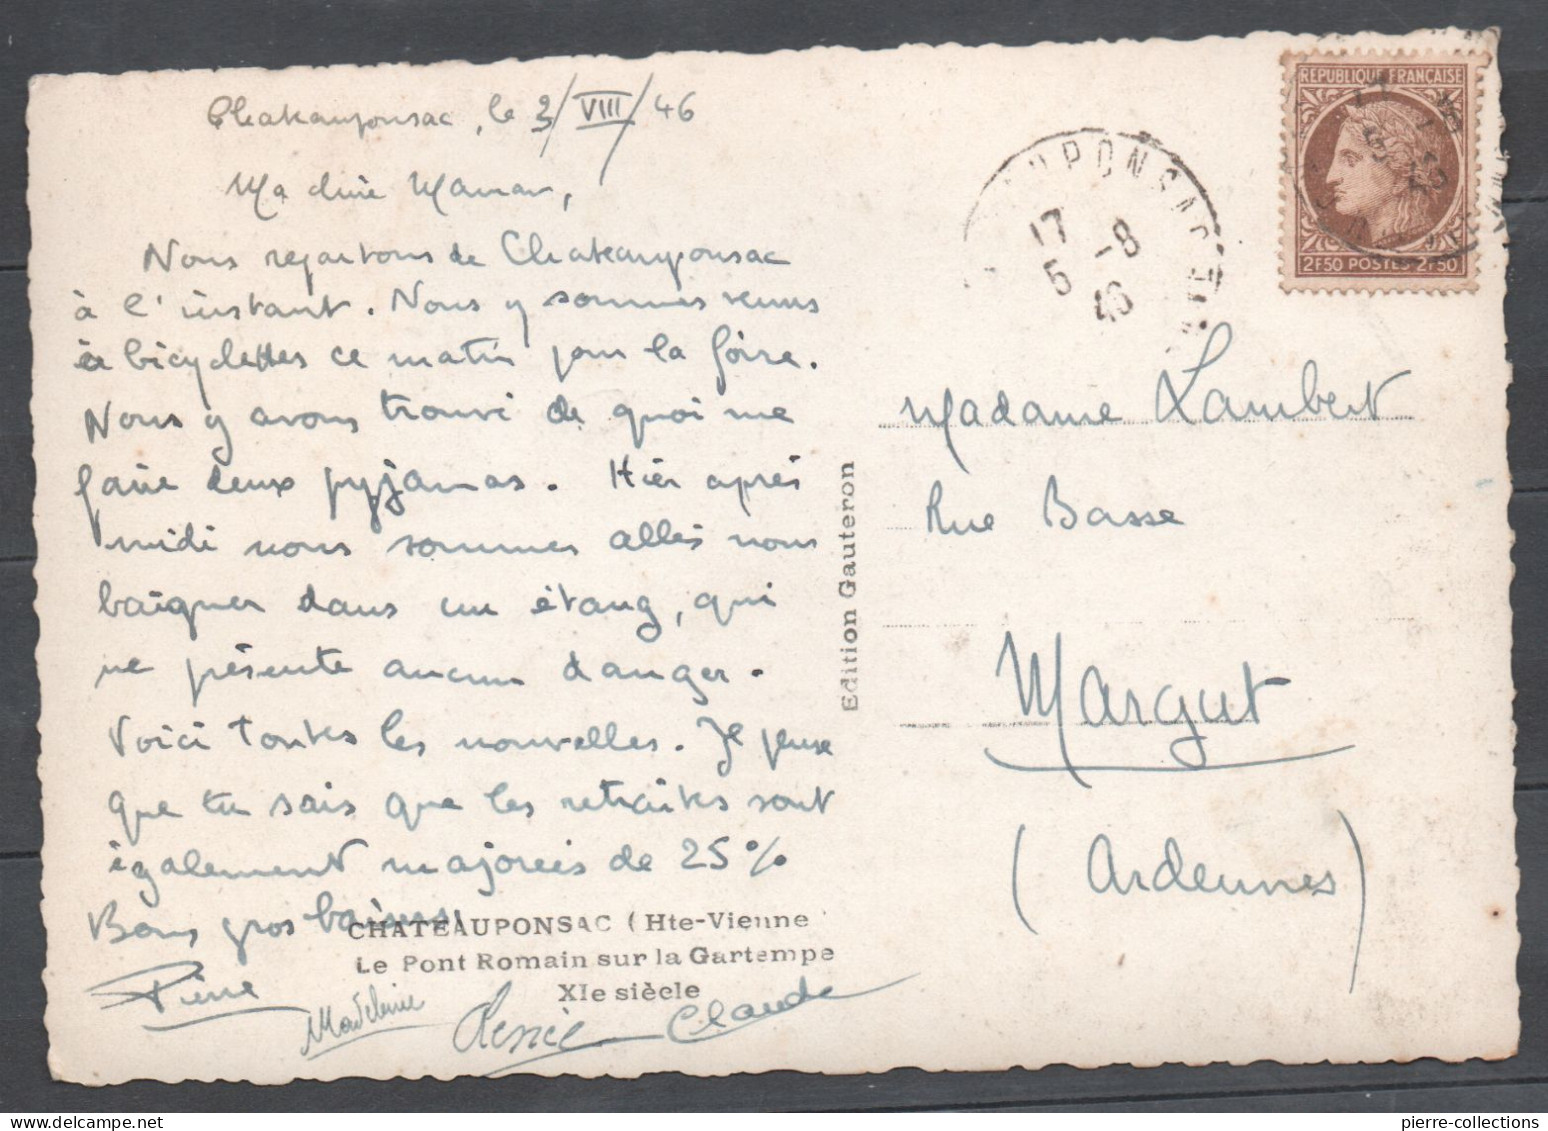 Chateauponsac, le 3/VIII/46
Ma chère Maman,
Nous repartons de Chateauponsac
à l'instant. Nous y sommes venus
à bicyclettes ce matin pour la foire.
Nous y avons trouvé de quoi me
faire deux pyjamas. Hier après
midi nous sommes allés nous
baigner dans un étang, qui
ne présente aucun danger.
Voici toutes les nouvelles. Je pense
que tu sais que les retraites sont
également majorées de 25%
Bons gros baisers,
Pierre
Madeleine
Renée
Claude
CHATEAUPONSAC (Hte-Vienne
Le Pont Romain sur la Gartempe
XIe siècle
Edition Gauteron
UPONSAC
17 -8
5 46
REPUBLIQUE FRANÇAISE
2F50 POSTES 2F50
Madame Lambert
Rue Basse
Margut
(Ardennes)
pierre-collections